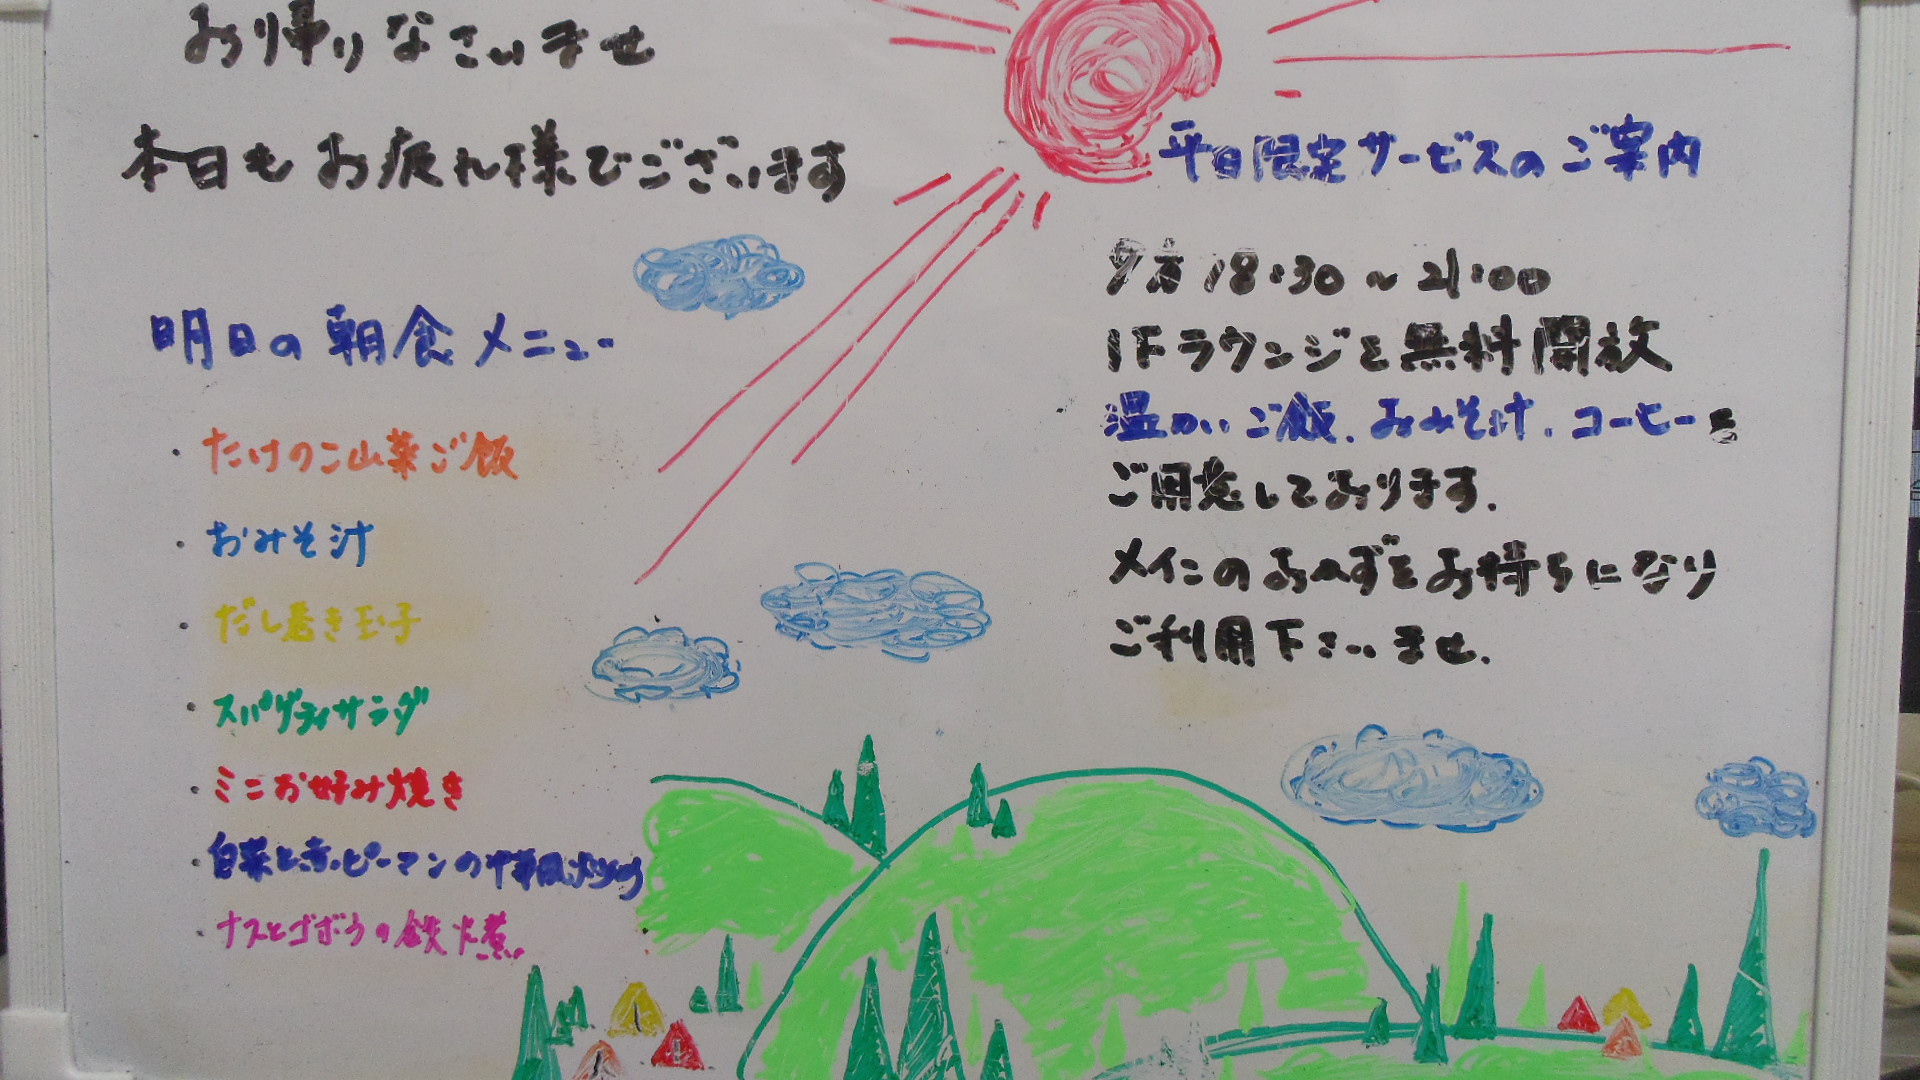 お帰りなさいませ
本日もお疲れ様でございます
明日の朝食メニュー
・たけのこ山菜ご飯
・おみそ汁
・だし巻き玉子
・スパゲティサラダ
・ミニお好み焼き
・白菜と赤ピーマンの中華風炒め
・ナスとゴボウの鉄火煮
平日限定サービスのご案内
夕方 18:30~21:00
1Fラウンジを無料開放
温かいご飯、おみそ汁、コーヒーを
ご用意しております。
メインのおかずをお持ちになり
ご利用下さいませ。